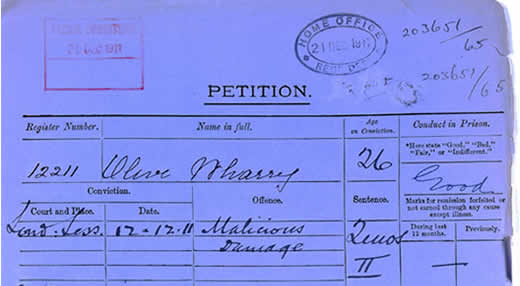 21 DEC 1911
HOME OFFICE
21 DEC. 1911
RECD. DEPT.
203651/
65
203651/65
PETITION.
Register Number.
Name in full.
Age
on Conviction.
Conduct in Prison.
*Here state "Good," "Bad,"
"Fair," or "Indifferent."
12211
Olive Wharry
26
Good
Conviction.
Offence.
Sentence.
Marks for remission forfeited or
not earned through any cause
except illness.
Court and Place.
Date.
During last
12 months.
Previously.
Lond. Sess.
12-12-11
Malicious
Damage
2mos
II
—